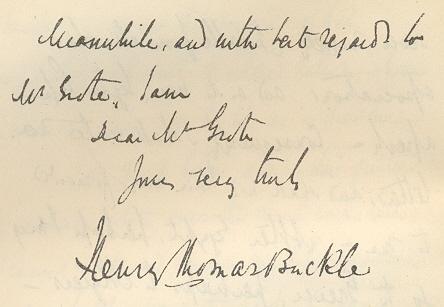 Meanwhile, and with best regards to
Mr Grote, I am
Dear Mrs Grote
Yours very truly
Henry Thomas Buckle